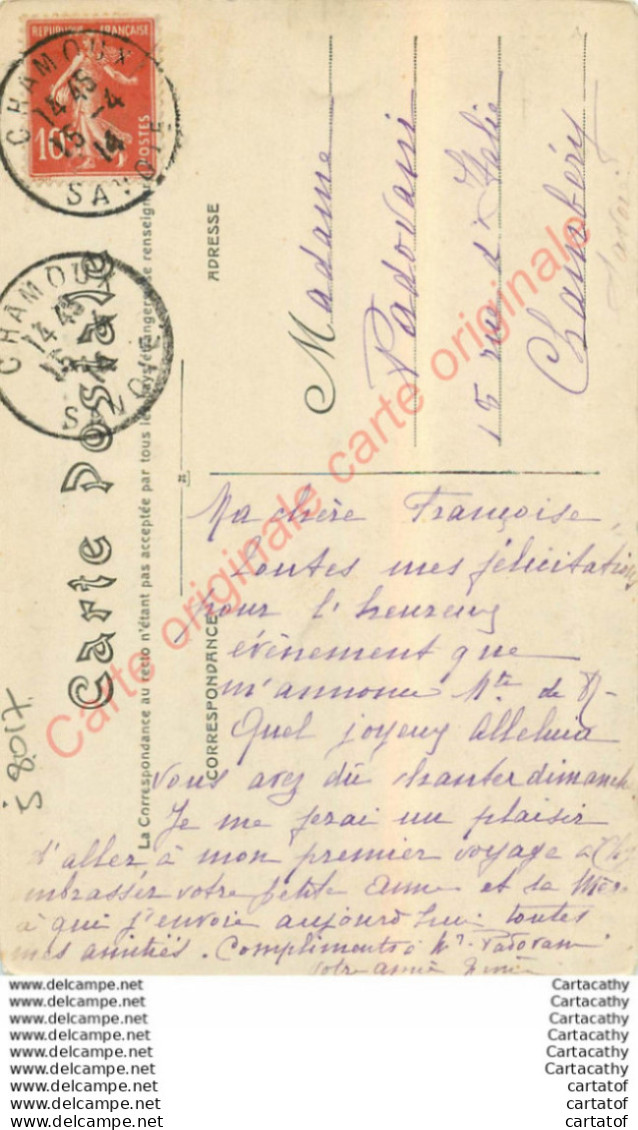 REPUBLIQUE FRANÇAISE
10
POSTES
CHAMOUX
14 45
15 -4
14
SAVOIE
CHAMOUX
14 45
15
SAVOIE
Carte Postale
La Correspondance au recto n'étant pas acceptée par tous les pays étrangers, se renseigner
CORRESPONDANCE
ADRESSE
Madame
Padovani
15 rue d'Italie
Chambéry
Savoie
Ma chère Françoise,
Toutes mes félicitations
pour l'heureux
évènement que
m'annonce Mte de R-
Quel joyeux Alleluia
vous avez dû chanter dimanche
Je me ferai un plaisir
d'aller à mon premier voyage à
embrasser votre petite Anne et sa Mère
à qui j'envoie aujourd'hui toutes
mes amitiés. Compliments à Mr Padovani
Votre amie
Carte originale carte originale
www.delcampe.net
www.delcampe.net
www.delcampe.net
www.delcampe.net
www.delcampe.net
www.delcampe.net
www.delcampe.net
www.delcampe.net
Cartacathy
Cartacathy
Cartacathy
Cartacathy
Cartacathy
cartatof
cartatof
cartatof